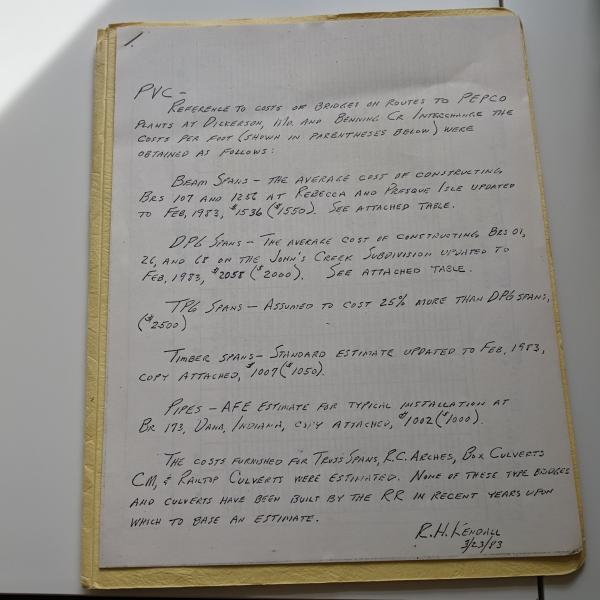 1.
PVC -
REFERENCE TO COSTS OF BRIDGES ON ROUTES TO PEPCO
PLANTS AT DICKERSON, MD. AND BENNING CR INTERCHANGE THE
COSTS PER FOOT (SHOWN IN PARENTHESES BELOW) WERE
OBTAINED AS FOLLOWS:
BEAM SPANS - THE AVERAGE COST OF CONSTRUCTING
BRS 107 AND 1256 AT REBECCA AND PRESQUE ISLE UPDATED
TO FEB, 1983, $1536 ($1550). SEE ATTACHED TABLE.
DPG SPANS - THE AVERAGE COST OF CONSTRUCTING BRS 01,
26, AND 68 ON THE JOHN'S CREEK SUBDIVISION UPDATED TO
FEB, 1983, $2058 ($2000). SEE ATTACHED TABLE.
TPG SPANS - ASSUMED TO COST 25% MORE THAN DPG SPANS,
($2500)
TIMBER SPANS - STANDARD ESTIMATE UPDATED TO FEB, 1983,
COPY ATTACHED, $1007 ($1050).
PIPES - AFE ESTIMATE FOR TYPICAL INSTALLATION AT
BR 173, DANA, INDIANA, COPY ATTACHED, $1002 ($1000).
THE COSTS FURNISHED FOR TRUSS SPANS, R.C. ARCHES, BOX CULVERTS
C.M, & RAILTOP CULVERTS WERE ESTIMATED. NONE OF THESE TYPE BRIDGES
AND CULVERTS HAVE BEEN BUILT BY THE RR IN RECENT YEARS UPON
WHICH TO BASE AN ESTIMATE.
R.H. KENDALL
3/23/83